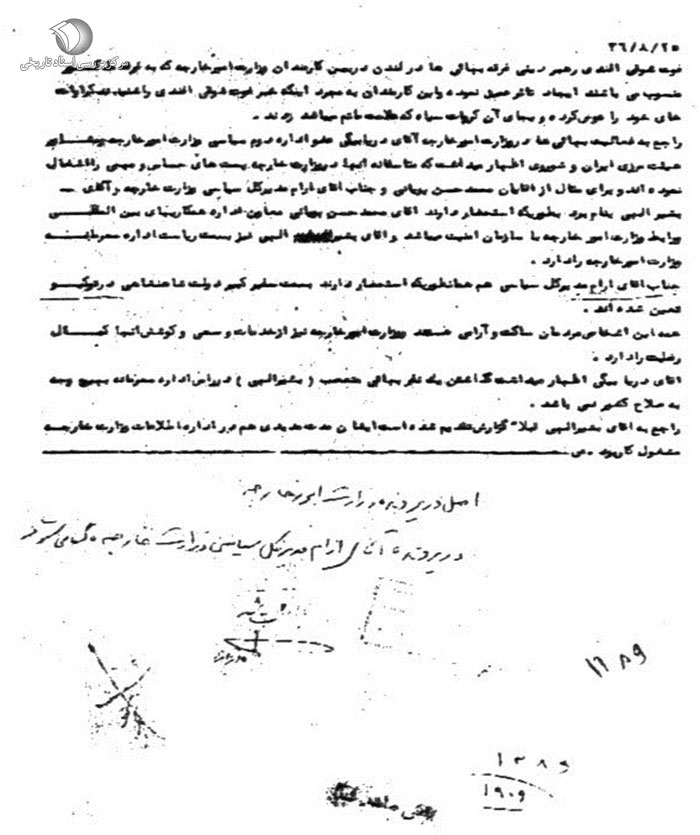 مرکز بررسی اسناد تاریخی
۳۶/۸/۲۵
فوت شوقی افندی رهبر دینی فرقه بهائی ها در لندن در بین کارمندان وزارت امور خارجه که به فرقه
منسوب می باشند ایجاد تاثر عمیق نموده و این کارمندان به مجرد اینکه خبر فوت شوقی افندی را شنیدند کراوات
های خود را عوض کرده و بجای آن کروات سیاه که علامت ماتم میباشد زدند .
راجع به فعالیت بهائی ها در وزارت امور خارجه آقای دریابیگی عضو اداره دوم سیاسی وزارت امور خارجه
هیئت مرزی ایران و شوروی اظهار میداشت که متاسفانه آنها در وزارت خارجه پست های حساس و مهمی را اشغال
نموده اند و برای مثال از آقایان محمد حسن پویانی و جناب آقای آرام مدیرکل سیاسی وزارت خارجه و آقای
بشیر الهی نام برد بطوریکه استحضار دارند آقای محمد حسن پویانی معاون اداره همکاریهای بین المللی
ورابط وزارت امور خارجه با سازمان امنیت میباشد و آقای بشیر الهی نیز پست ریاست اداره محرمانه
وزارت امور خارجه را دارد .
جناب آقای آرام مدیرکل سیاسی هم همانطوریکه استحضار دارند بسمت سفیر کبیر دولت شاهنشاهی در توکیو
تعیین شده اند .
همه این اشخاص مردمان ساکت و آرامی هستند و وزارت امور خارجه نیز از خدمات و سعی و کوشش آنها کمال
رضایت را دارد .
آقای دریا بیگی اظهار میداشت گذاشتن یک نفر بهائی متعصب ( بشیر الهی ) در راس اداره محرمانه بهیچ وجه
به صلاح کشور نمی باشد .
راجع به آقای بشیر الهی قبلا" گزارش تقدیم شده است ایشان مدت مدیدی هم در اداره اطلاعات وزارت خارجه
مشغول کار بود . ص
اصل در پرونده وزارت امور خارجه
در پرونده آقای آرام مدیر کل سیاسی وزارت خارجه
۱۳۸۶
۱۹۰۶